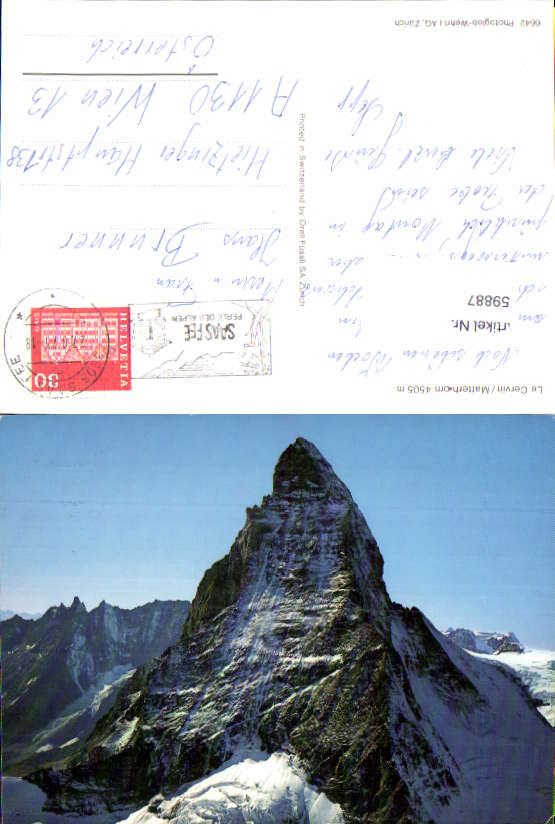 Le Cervin / Matterhorn 4505 m
Nach schönen Wochen
am
sich
unterwegs, aber
pünktlich Montag in
der Probe sein
Viele herzl. Grüße
Sepp
rtikel Nr.
59887
Printed in Switzerland by Orell Füssli SA, Zürich
6642 Photoglob-Wehrli AG, Zürich
SAAS FEE
PERLE DER ALPEN
HELVETIA
30
Herrn u. Frau
Hans Brunner
Hietzinger Hauptstr 138
A 1130 Wien 13
Österreich